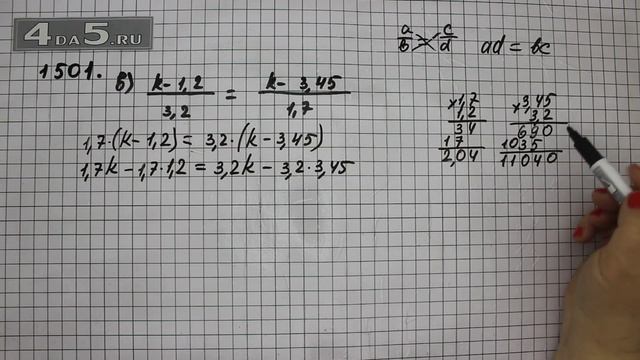 4DA5.RU
1501. в) k-1,2/3,2 = k-3,45/1,7
1,7·(k-1,2) = 3,2·(k-3,45)
1,7k-1,7·1,2 = 3,2k-3,2·3,45
a/b = c/d ad = bc
×1,7
1,2
34
17
2,04
×3,45
3,2
690
1035
11040